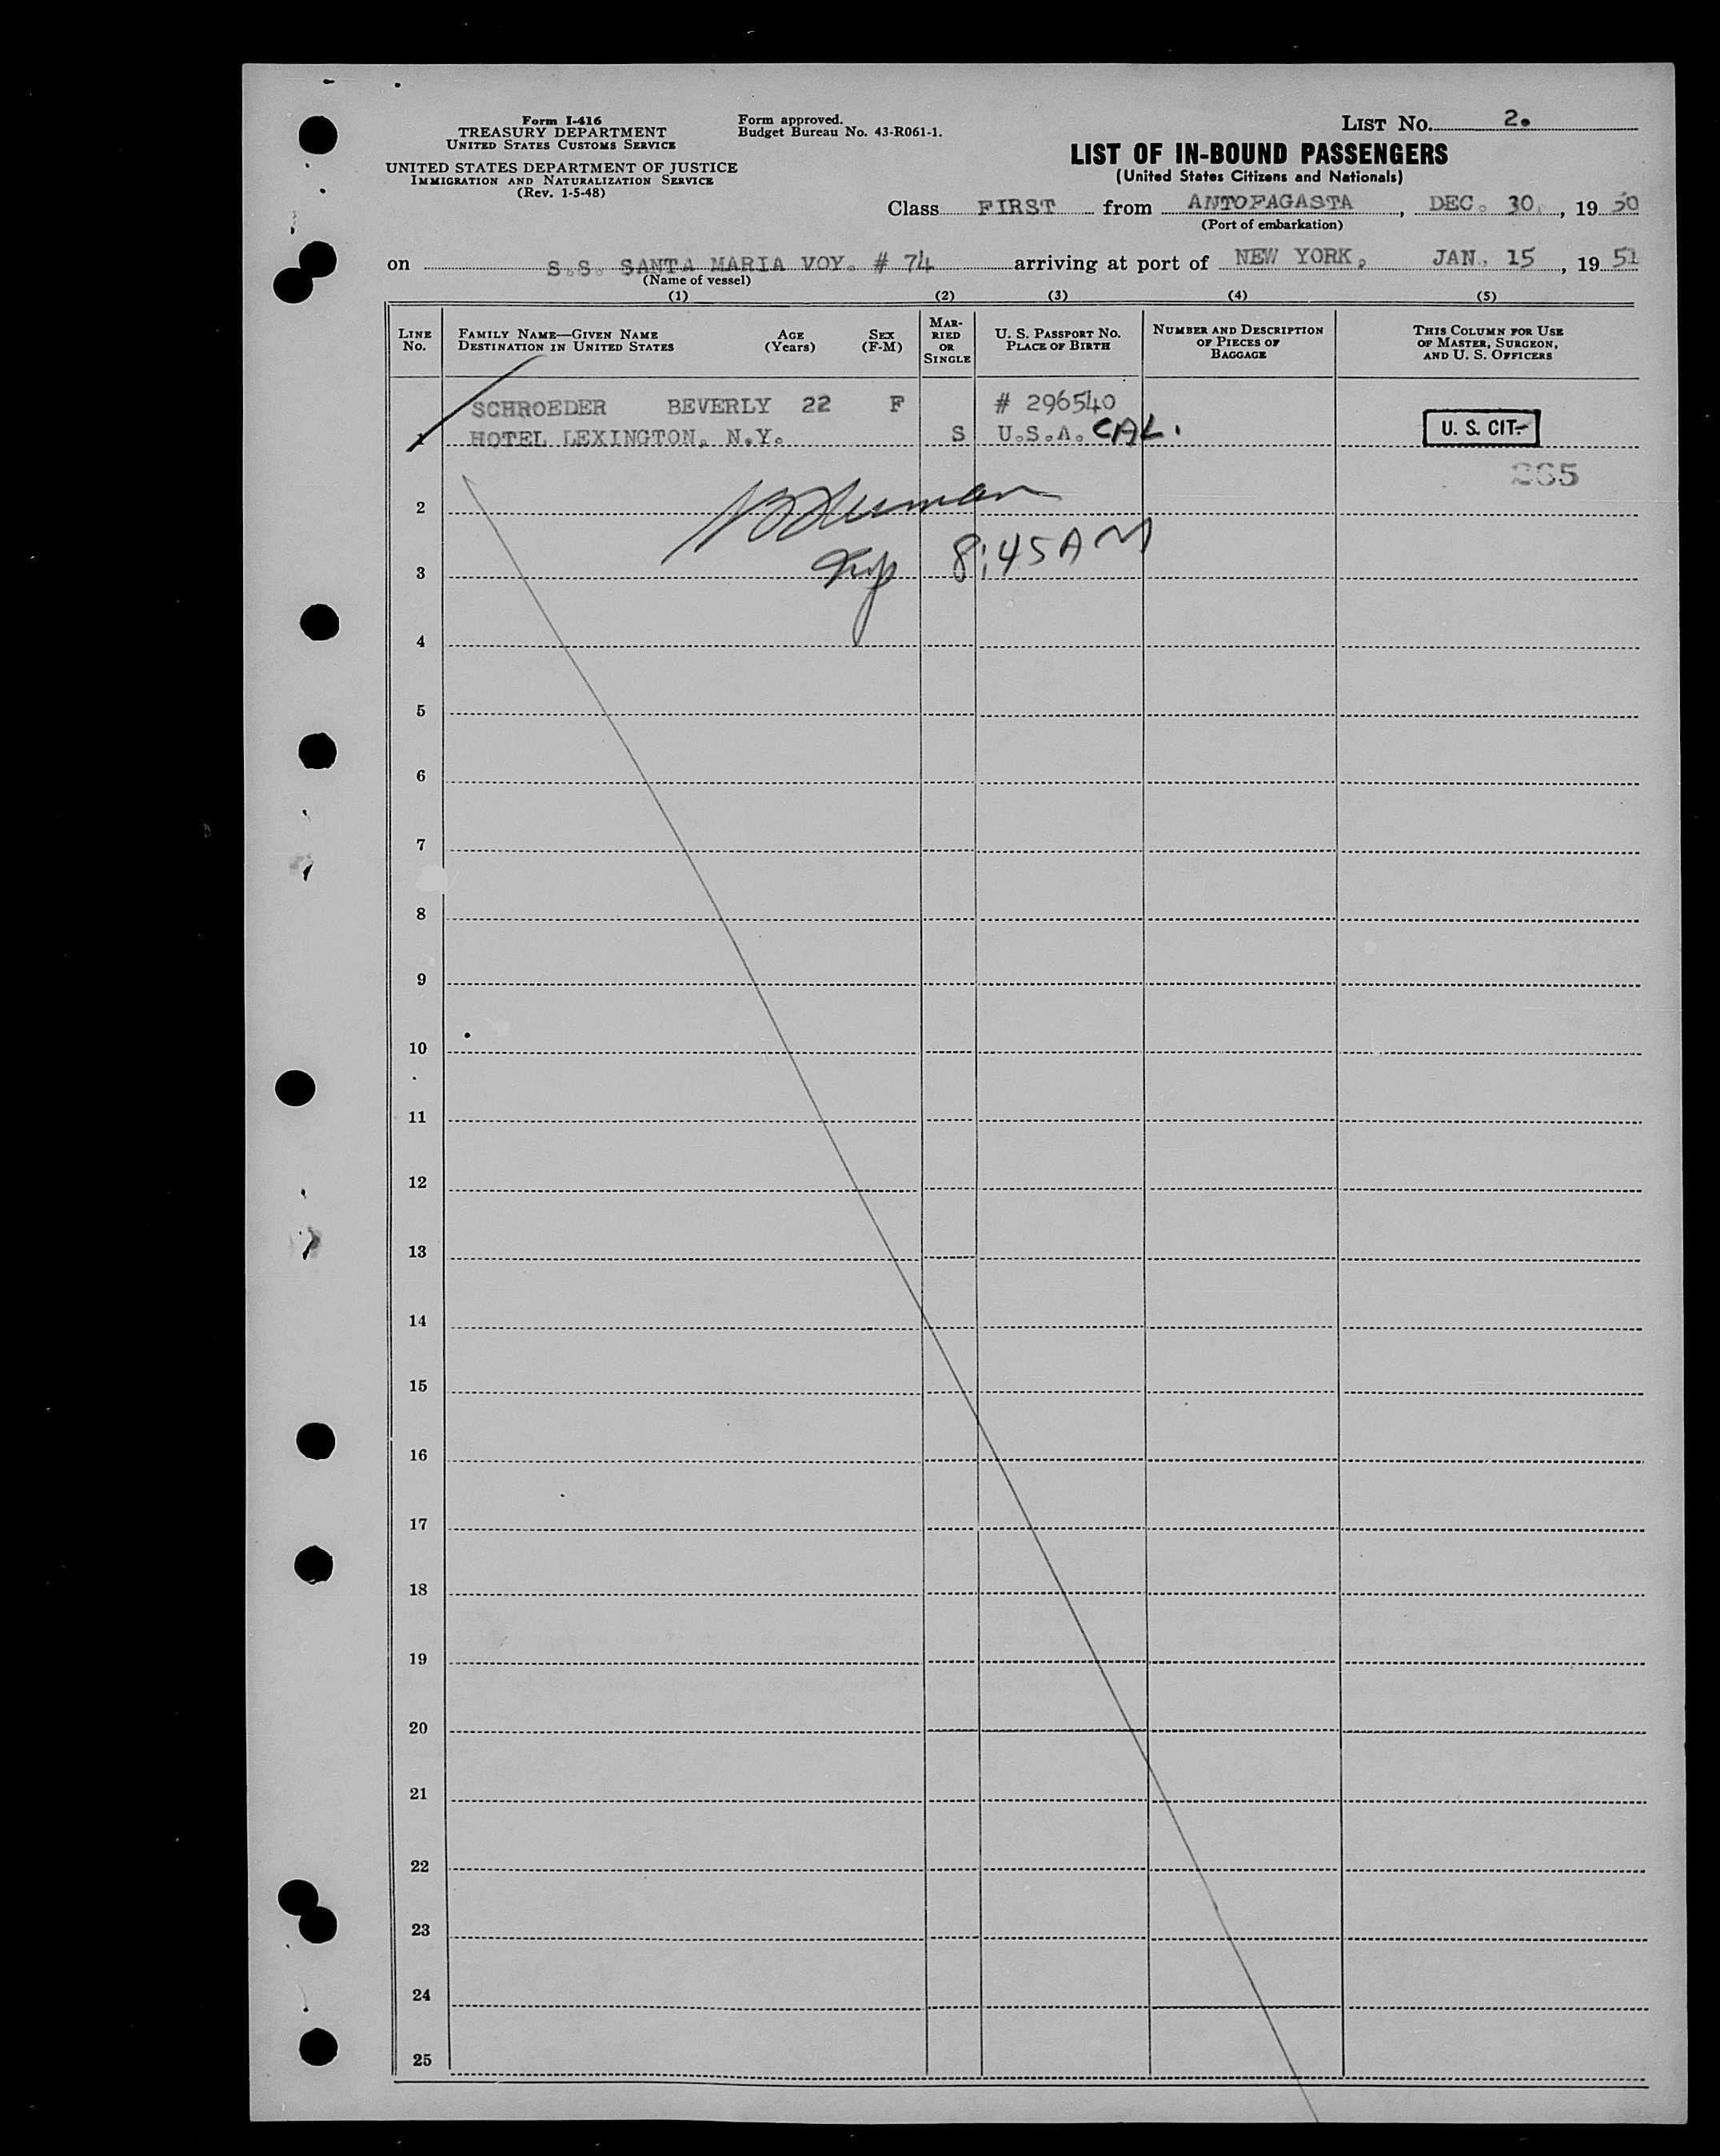 Form I-416
TREASURY DEPARTMENT
UNITED STATES CUSTOMS SERVICE
UNITED STATES DEPARTMENT OF JUSTICE
IMMIGRATION AND NATURALIZATION SERVICE
(Rev. 1-5-48)
Form approved.
Budget Bureau No. 43-R061-1.
LIST No. 2.
LIST OF IN-BOUND PASSENGERS
(United States Citizens and Nationals)
Class FIRST from ANTOFAGASTA, DEC. 30, 19 50
(Port of embarkation)
on S.S. SANTA MARIA VOY. # 74 arriving at port of NEW YORK, JAN. 15, 19 51
(Name of vessel)
(1) (2) (3) (4) (5)
LINE No.
FAMILY NAME—GIVEN NAME
DESTINATION IN UNITED STATES
AGE (Years)
SEX (F-M)
MARRIED OR SINGLE
U. S. PASSPORT NO.
PLACE OF BIRTH
NUMBER AND DESCRIPTION OF PIECES OF BAGGAGE
THIS COLUMN FOR USE OF MASTER, SURGEON, AND U. S. OFFICERS
SCHROEDER BEVERLY 22 F # 296540
1 HOTEL LEXINGTON, N.Y. S U.S.A. CAL. U. S. CIT-
265
2
8:45 AM
3
4
5
6
7
8
9
10
11
12
13
14
15
16
17
18
19
20
21
22
23
24
25